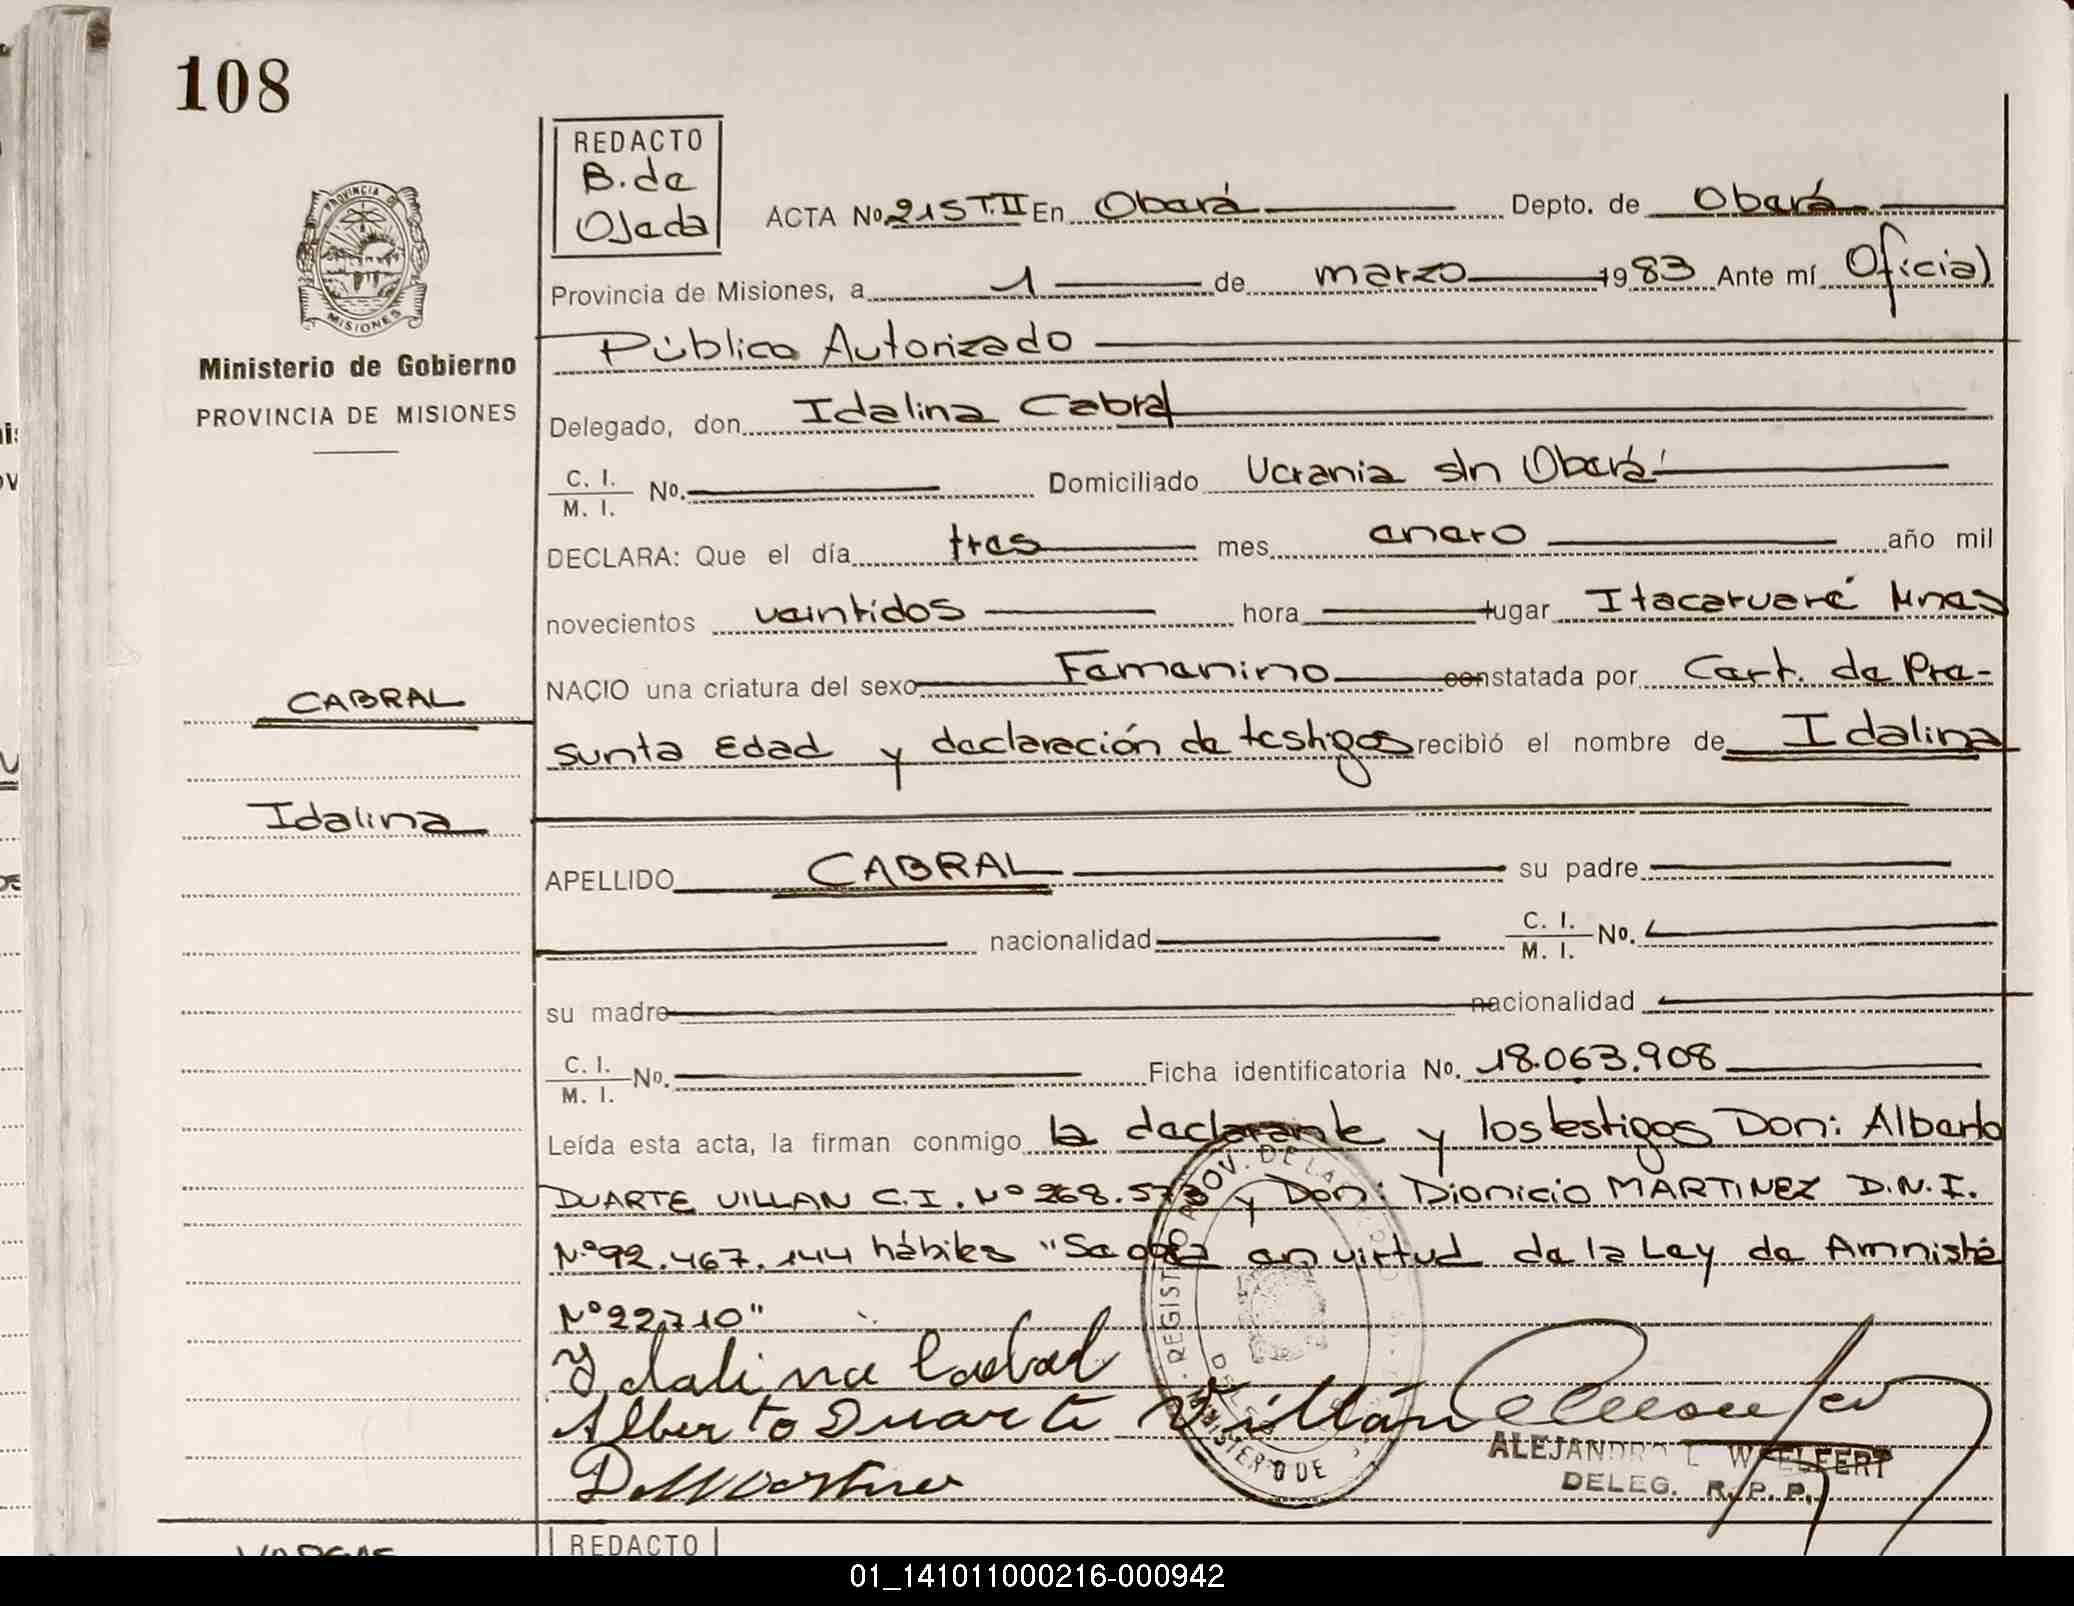 108
REDACTO
B. de
Ojeda
ACTA No. 215 T.II En Oberá Depto. de Oberá
Provincia de Misiones, a 1 de marzo 1983 Ante mí Oficial
Público Autorizado
PROVINCIA DE
MISIONES
Ministerio de Gobierno
PROVINCIA DE MISIONES
Delegado, don Idalina Cabral
C. I.
M. I. No. Domiciliado Ucrania s/n Oberá
DECLARA: Que el día tres mes enero año mil
novecientos veintidos hora lugar Itacaruaré Mnes
NACIO una criatura del sexo Femenino constatada por Cert. de Pre-
CABRAL
sunta Edad y declaración de testigos recibió el nombre de Idalina
Idalina
APELLIDO CABRAL su padre
nacionalidad C. I.
M. I. No.
su madre nacionalidad
C. I.
M. I. No. Ficha identificatoria No. 18.063.908
Leída esta acta, la firman conmigo la declarante y los testigos Don: Alberto
DUARTE VILLAN C.I. Nº 268.573 y Don: Dionicio MARTINEZ D.N.I.
Nº 92.467.144 hábiles "Se obra en virtud de la Ley de Amnistía
Nº 22.710"
Idalina Cabral
Alberto Duarte Villán
D. Martinez
REGISTRO PROV. DE LA
MINISTERIO DE
ALEJANDRO L. WELFERT
DELEG. R. P. P.
REDACTO
VARGAS
01_141011000216-000942